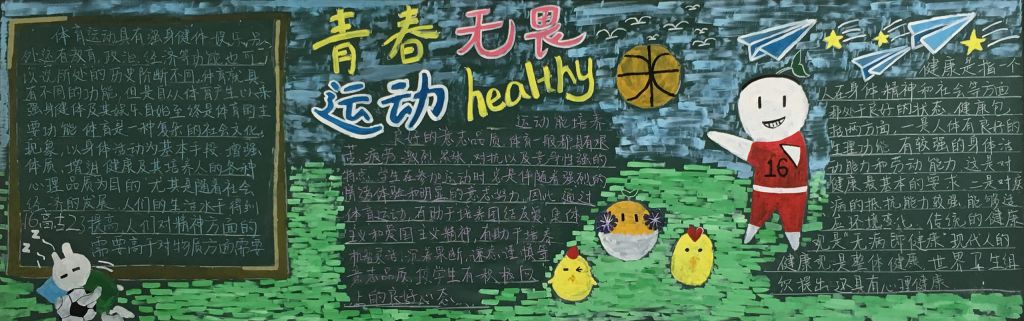 青春无畏
运动 healthy
体育运动具有强身健体 娱乐
外还有教育、政治、经济等功能 也可
以说所处的历史阶段不同，体育就具
有不同的功能，但是自从体育产生以来
强身健体及其娱乐目的至终是体育的主
要功能 体育是一种复杂的社会文化
现象，以身体活动为基本手段，增强
体质，增进健康及其培养人的各种
心理品质为目的 尤其是随着社会
经济的发展，人们的生活水平得到
提高，人们对精神方面的
需要高于对物质方面需要
16高
zzz
运动能培养
良好的意志品质 体育一般都具有艰
苦、疲劳、激烈、紧张、对抗以及竞争性强的
特点。学生在参加运动时总是伴随着强烈的
情绪体验和明显的意志努力。因此，通过
体育运动，有助于培养团结友爱、集体
主义和爱国主义精神，有助于培养
机智灵活、沉着果断、谦虚谨慎等
意志品质，使学生有积极向
上的良好心态
16
健康是指一个
人在身体、精神和社会等方面
都处于良好的状态。健康包
括两方面，一是人体有良好的
生理功能 有较强的身体活
动能力和劳动能力 这是对
健康最基本的要求 二是对疾
病的抵抗能力较强 能够适
应环境变化。传统的健康
观是“无病即健康”现代人的
健康观是整体健康，世界卫生组
织提出 还具有心理健康